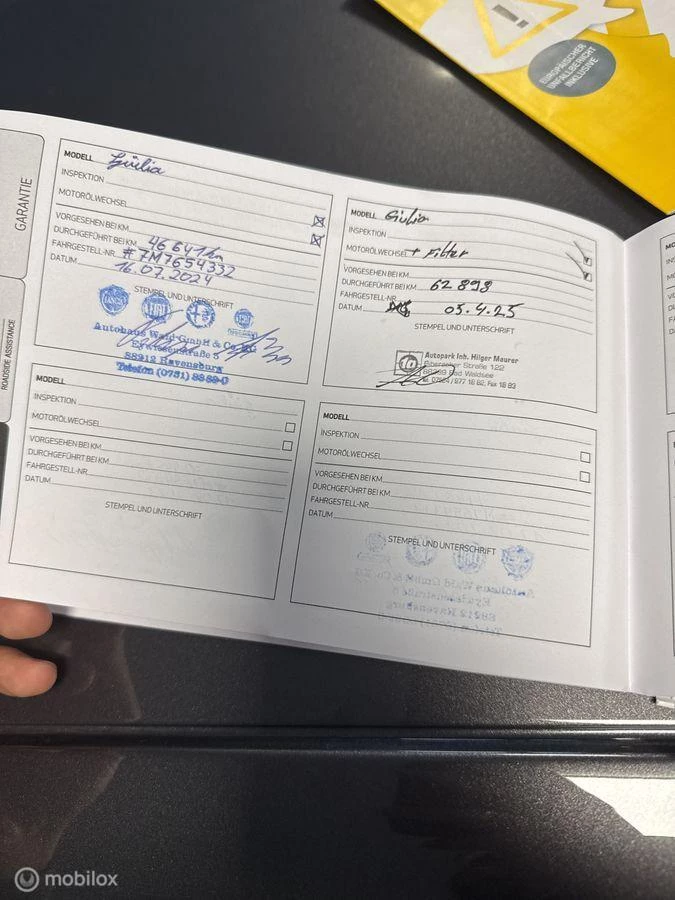 EUROPÄISCHER
UNFALLBERICHT
INKLUSIVE
GARANTIE
ROADSIDE ASSISTANCE
MODELL Giulia
INSPEKTION
MOTORÖLWECHSEL
VORGESEHEN BEI KM
DURCHGEFÜHRT BEI KM 46641 km
FAHRGESTELL-NR. #7M7654332
DATUM 16.07.2024
STEMPEL UND UNTERSCHRIFT
Autohaus Wald GmbH & Co. KG
Eywiesenstraße 5
88212 Ravensburg
Telefon (0751) 8888-0
MODELL Giulia
INSPEKTION
MOTORÖLWECHSEL + Filter
VORGESEHEN BEI KM
DURCHGEFÜHRT BEI KM 62 898
FAHRGESTELL-NR.
DATUM 05.4.25
STEMPEL UND UNTERSCHRIFT
Autopark Inh. Hilger Maurer
Biberacher Straße 122
88339 Bad Waldsee
Tel. 07524 / 977 18 82, Fax 18 83
MODELL
INSPEKTION
MOTORÖLWECHSEL
VORGESEHEN BEI KM
DURCHGEFÜHRT BEI KM
FAHRGESTELL-NR.
DATUM
STEMPEL UND UNTERSCHRIFT
MODELL
INSPEKTION
MOTORÖLWECHSEL
VORGESEHEN BEI KM
DURCHGEFÜHRT BEI KM
FAHRGESTELL-NR.
DATUM
STEMPEL UND UNTERSCHRIFT
mobilox